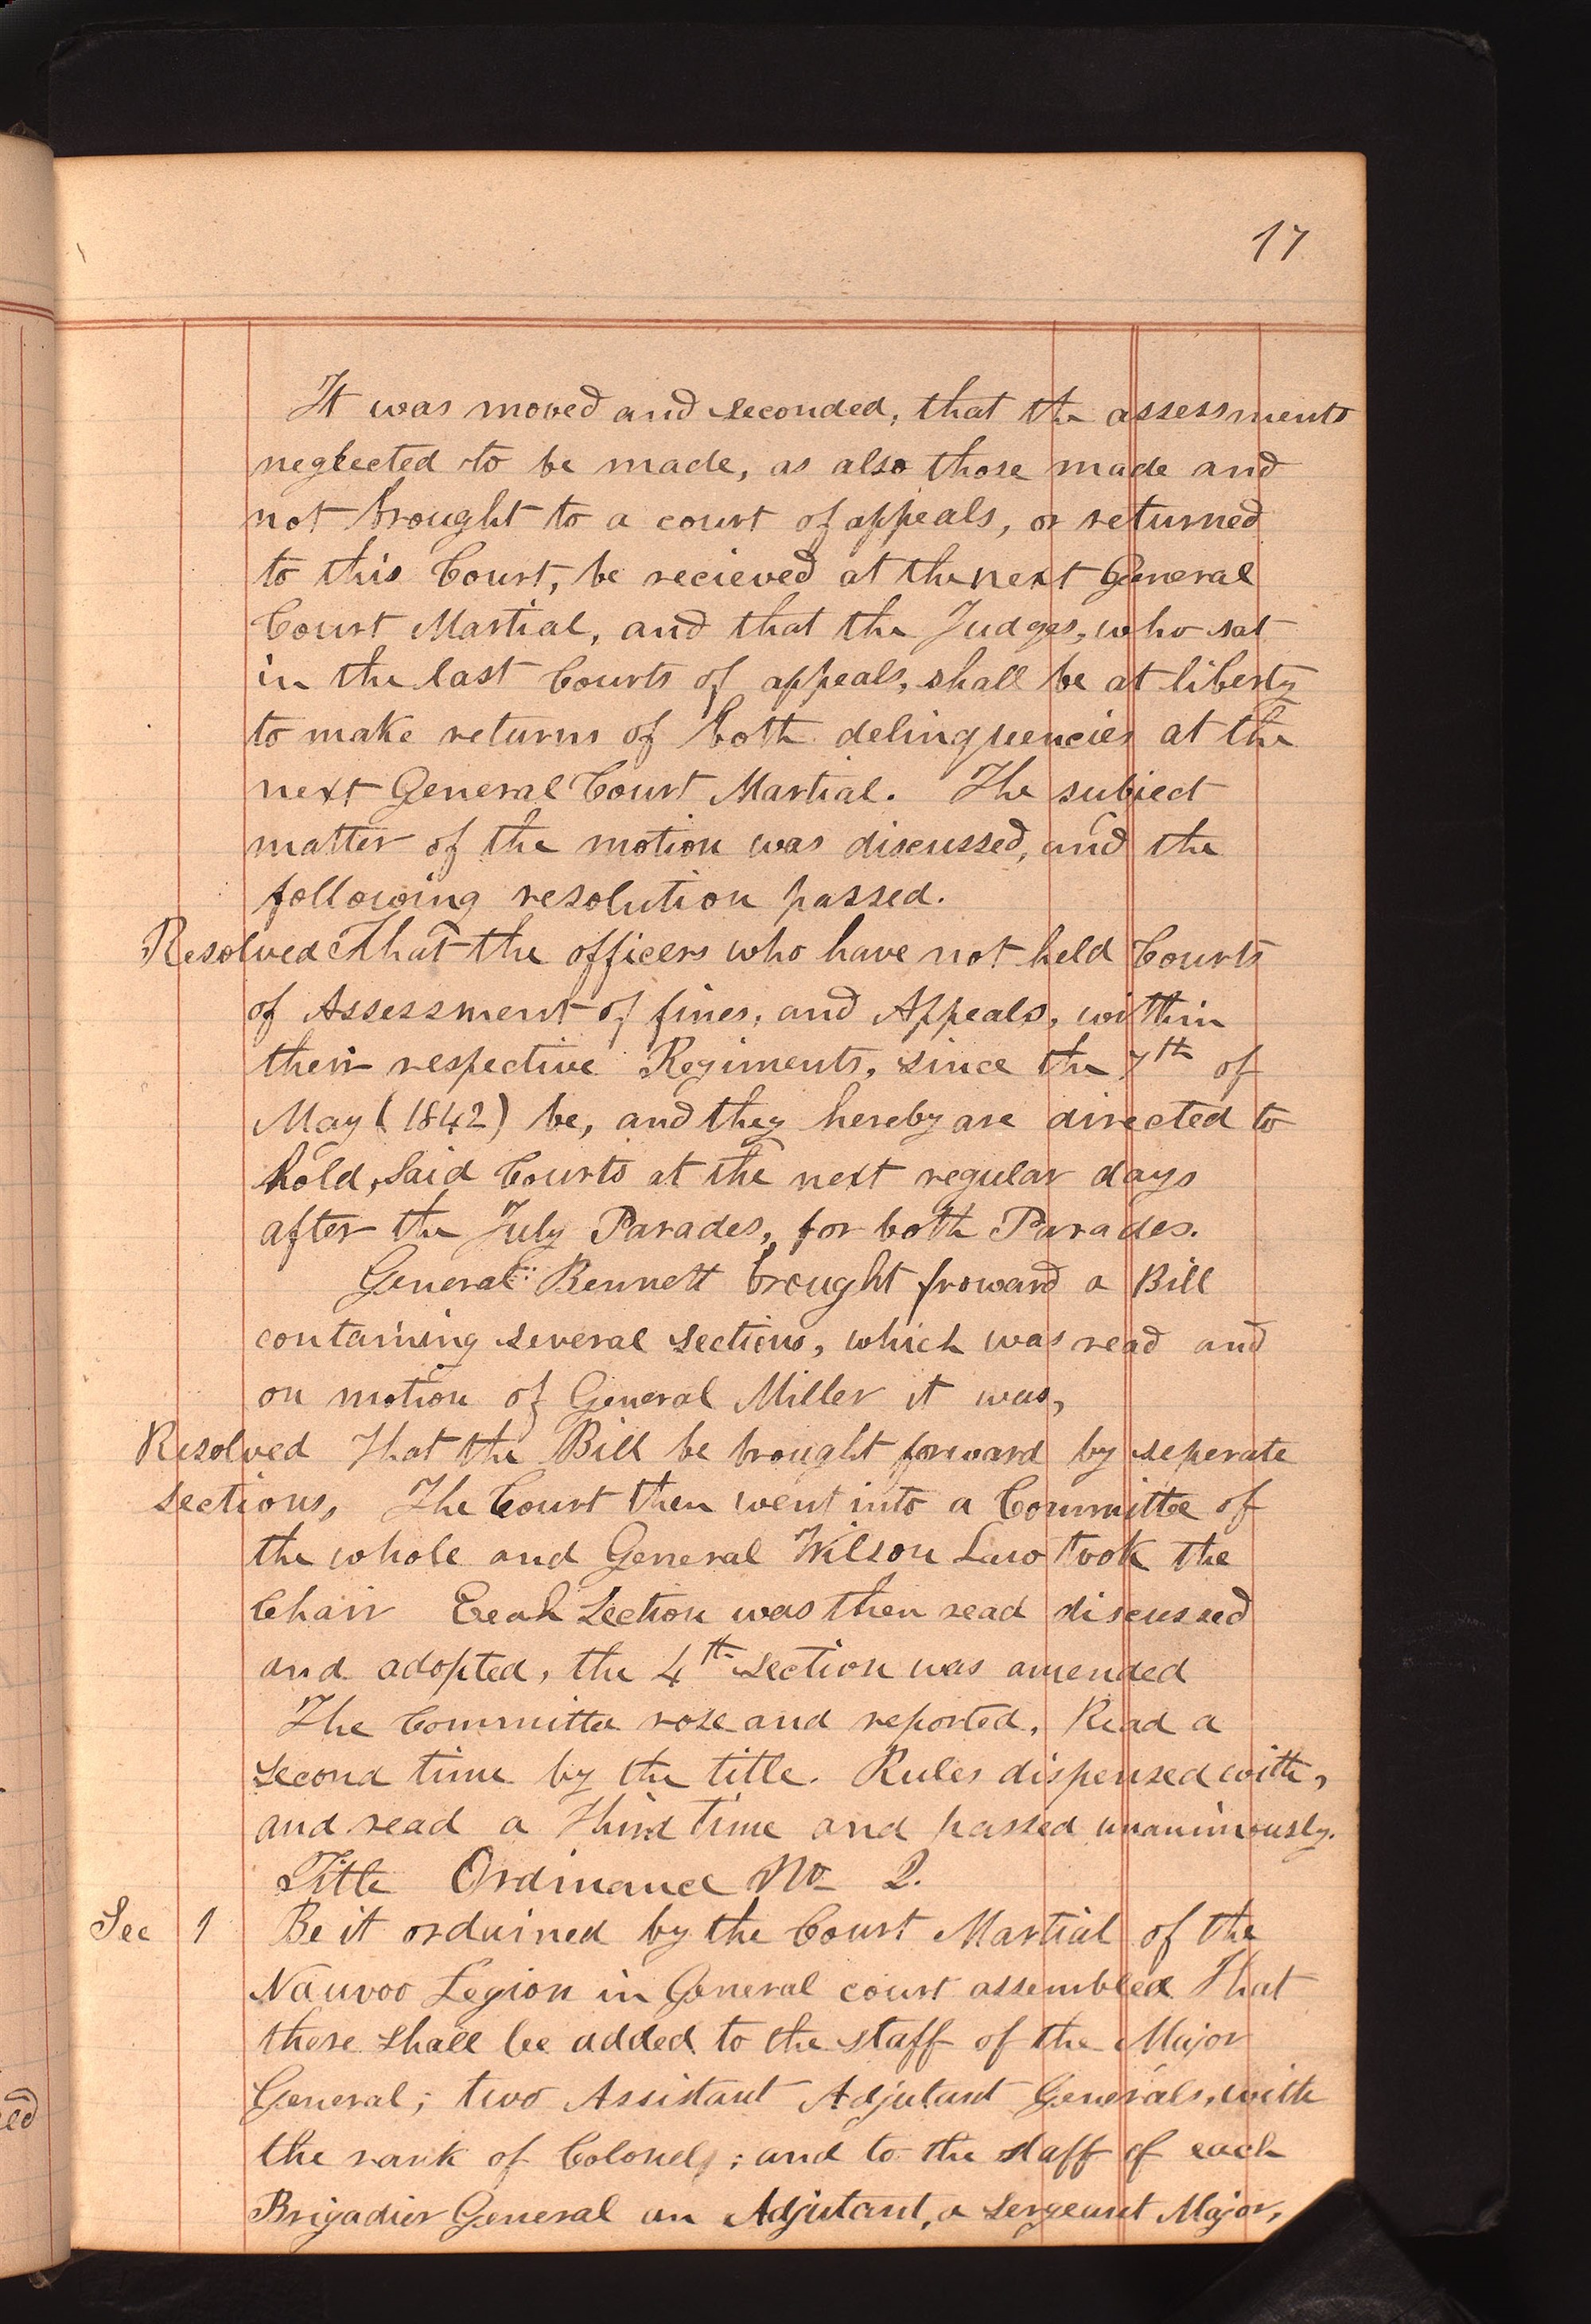 17
It was moved and seconded, that the assessments
neglected to be made, as also those made and
not brought to a court of appeals, or returned
to this Court, be recieved at the next General
Court Martial, and that the Judges, who sat
in the last Courts of appeals, shall be at liberty
to make returns of both delinquencies at the
next General Court Martial. The subject
matter of the motion was discussed, and the
following resolution passed.
Resolved That the officers who have not held Courts
of Assessment of fines, and Appeals, within
their respective Regiments, since the 7th of
May (1842) be, and they hereby are directed to
hold, said Courts at the next regular days
after the July Parades, for both Parades.
General Bennett brought froward a Bill
containing several sections, which was read and
on motion of General Miller it was,
Resolved That the Bill be brought forward by seperate
sections, The Court then went into a Committee of
the whole and General Wilson Law took the
Chair Each Section was then read discussed
and adopted, the 4th Section was amended
The Committee rose and reported, Read a
second time by the title. Rules dispensed with,
and read a Third time and passed unanimously.
Title Ordinance No 2.
Sec 1 Be it ordained by the Court Martial of the
Nauvoo Legion in General court assembled That
there shall be added to the staff of the Major
General; two Assistant Adjutant Generals, with
the rank of Colonels; and to the staff of each
Brigadier General an Adjutant, a Sergeant Major,